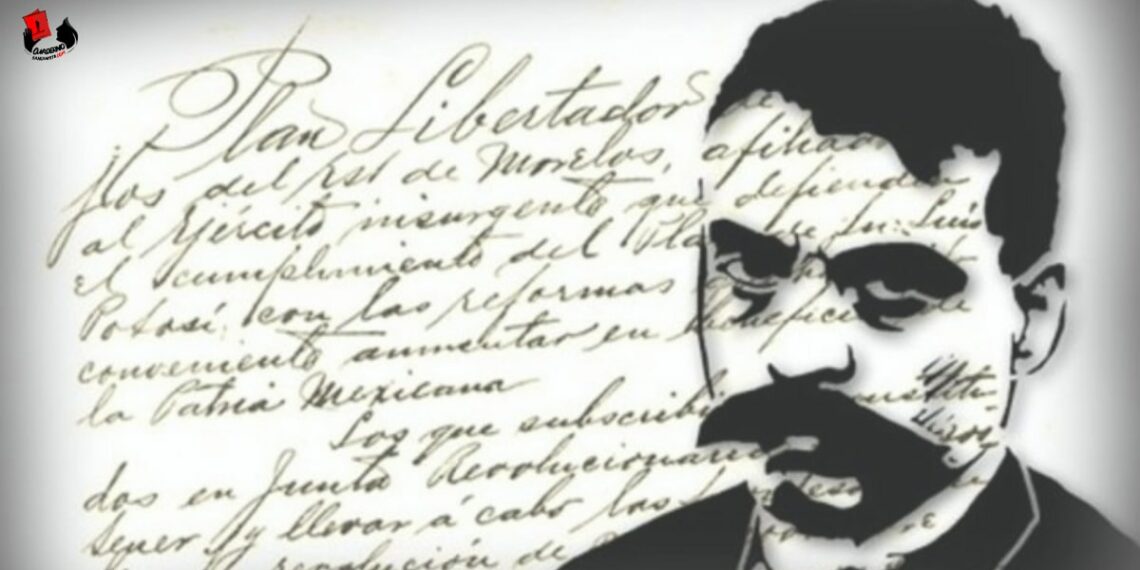 CUADERNO
Plan Libertador de
jos del Est de Morelos, afiliad
al Ejército insurgente que defiende
el cumplimiento del Plan de Sn. Luis
Potosí, con las reformas
conveniente aumentar en Beneficio de
la Patria Mexicana
Los que subscribi constitu
dos en Junta Revolucionaria
tener y llevar á cabo las
revolución de